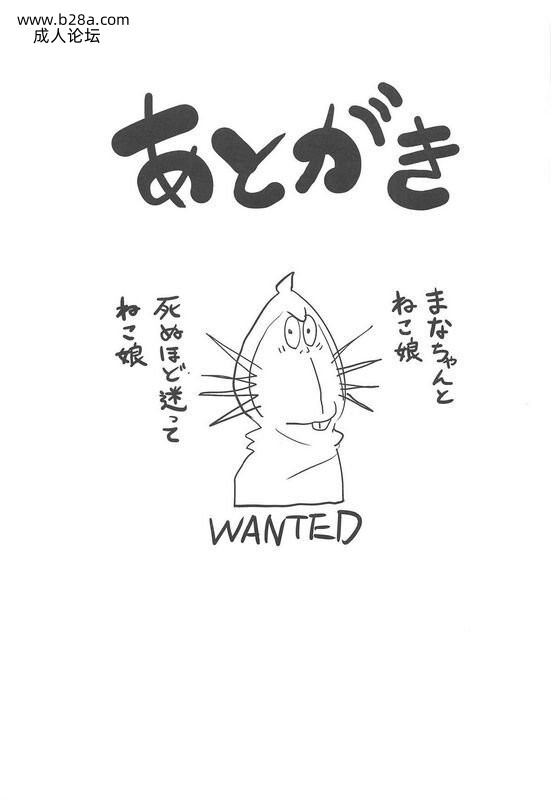 www.b28a.com
成人论坛
あとがき
まなちゃんと
ねこ娘
死ぬほど迷って
ねこ娘
WANTED